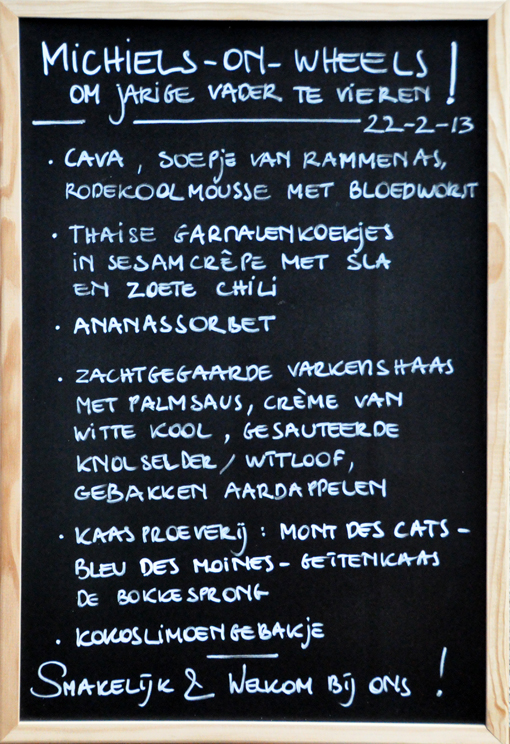 MICHIELS-ON-WHEELS!
OM JARIGE VADER TE VIEREN
22-2-13
• CAVA, SOEPJE VAN RAMMENAS,
RODEKOOLMOUSSE MET BLOEDWORST
• THAISE GARNALENKOEKJES
IN SESAMCRÊPE MET SLA
EN ZOETE CHILI
• ANANASSORBET
• ZACHTGEGAARDE VARKENSHAAS
MET PALMSAUS, CRÈME VAN
WITTE KOOL, GESAUTEERDE
KNOLSELDER/WITLOOF,
GEBAKKEN AARDAPPELEN
• KAASPROEVERIJ: MONT DES CATS-
BLEU DES MOINES-GEITENKAAS
DE BOKKESPRONG
• KOKOSLIMOENGEBAKJE
SMAKELIJK & WELKOM BIJ ONS!